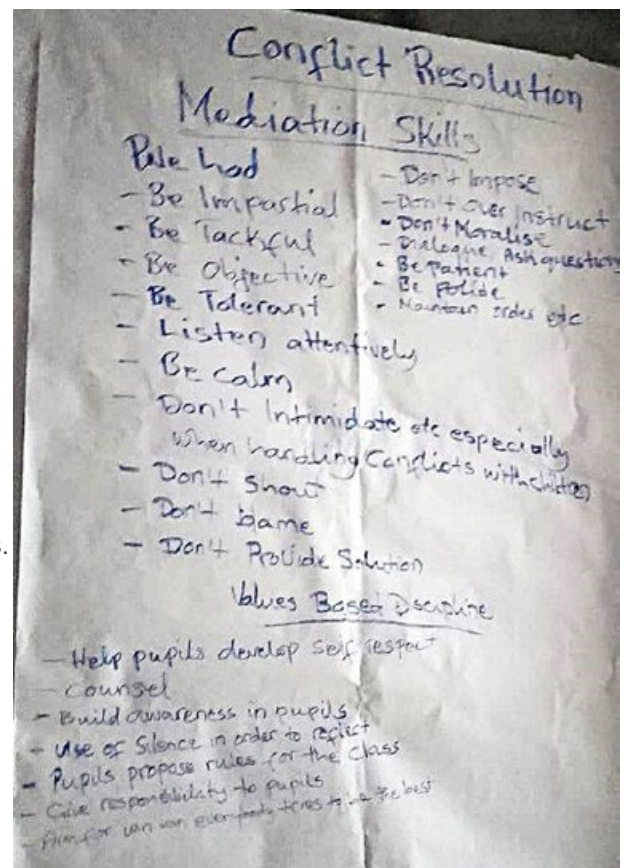 Conflict Resolution
Mediation Skills
- Be Impartial
- Be Tackful
- Be Objective
- Be Tolerant
- Listen attentively
- Be calm
- Don't Intimidate etc especially
when handling Conflicts with children
- Don't Shout
- Don't blame
- Don't Provide Solution
- Don't Impose
- Don't Over Instruct
- Don't Moralise
- Dialogue, Ask questions
- Be patient
- Be polide
- Maintain order etc
Values Based Discipline
- Help pupils develop self respect
- Counsel
- Build awareness in pupils
- Use of Silence in order to reflect
- Pupils propose rules for the class
- Give responsibility to pupils
- for win win everybody tries to the best